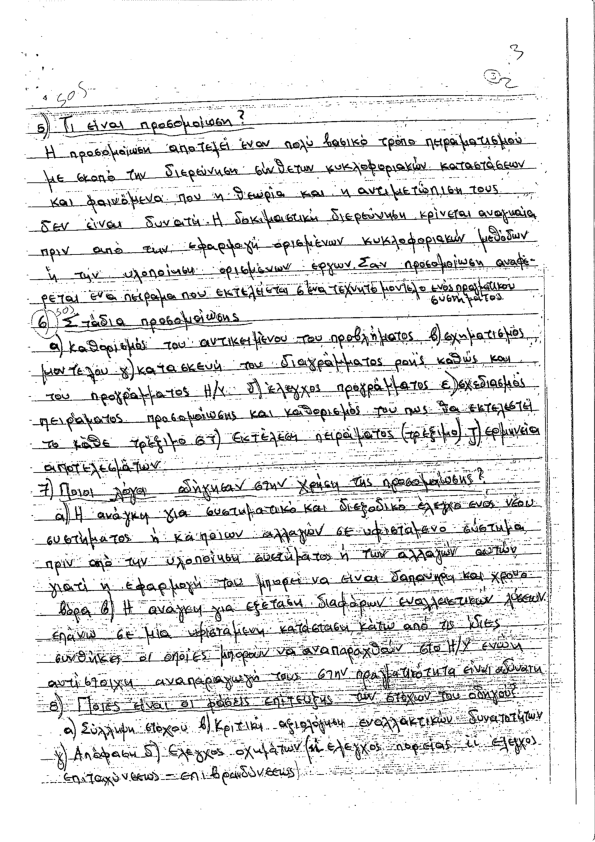 3
3
2
SOS
5) Τι είναι προσομοίωση?
Η προσομοίωση αποτελεί έναν πολύ βασικό τρόπο πειραματισμού
με σκοπό την διερεύνηση σύνθετων κυκλοφοριακών καταστάσεων
και φαινόμενα που η θεωρία και η αντιμετώπιση τους
δεν είναι δυνατή. Η δοκιμαστική διερεύνηση κρίνεται αναγκαία
πριν από την εφαρμογή ορισμένων κυκλοφοριακών μεθόδων
ή την υλοποίηση ορισμένων έργων. Σαν προσομοίωση αναφέ-
ρεται ένα πείραμα που εκτελείται σ'ένα τεχνητό μοντέλο ενός πραγματικού
συστήματος
SOS
6) Στάδια προσομοίωσης
α) καθορισμός του αντικειμένου του προβλήματος β) σχηματισμός
μοντέλου γ) κατασκευή του διαγράμματος ροής καθώς και
του προγράμματος Η/Υ δ) έλεγχος προγράμματος ε) σχεδιασμός
πειράματος προσομοίωσης και καθορισμός του πως θα εκτελεστεί
το κάθε τρέξιμο στ) εκτέλεση πειράματος (τρέξιμο) ζ) ερμηνεία
αποτελεσμάτων.
7) Ποιοι λόγοι οδήγησαν στην χρήση της προσομοίωσης?
α) Η ανάγκη για συστηματικό και διεξοδικό έλεγχο ενός νέου
συστήματος ή κάποιων αλλαγών σε υφιστάμενο σύστημα
πριν από την υλοποίηση συστήματος ή των αλλαγών αυτών
γιατί η εφαρμογή του μπορεί να είναι δαπανηρή και χρονο-
βόρα β) Η ανάγκη για εξέταση διαφόρων εναλλακτικών λύσεων
επάνω σε μία υφιστάμενη κατάσταση κάτω από τις ίδιες
συνθήκες οι οποίες μπορούν να αναπαραχθούν στο Η/Υ ενώ η
αντίστοιχη αναπαραγωγή τους στην πραγματικότητα είναι αδύνατη
8) Ποιές είναι οι φάσεις επίτευξης των στόχων του οδηγού?
α) Σύλληψη στόχου β) Κριτική αξιολόγηση εναλλακτικών δυνατοτήτων
γ) Απόφαση δ) Έλεγχος οχημάτων (i έλεγχος πορείας ii έλεγχος
επιταχύνσεως - επιβραδύνσεως)